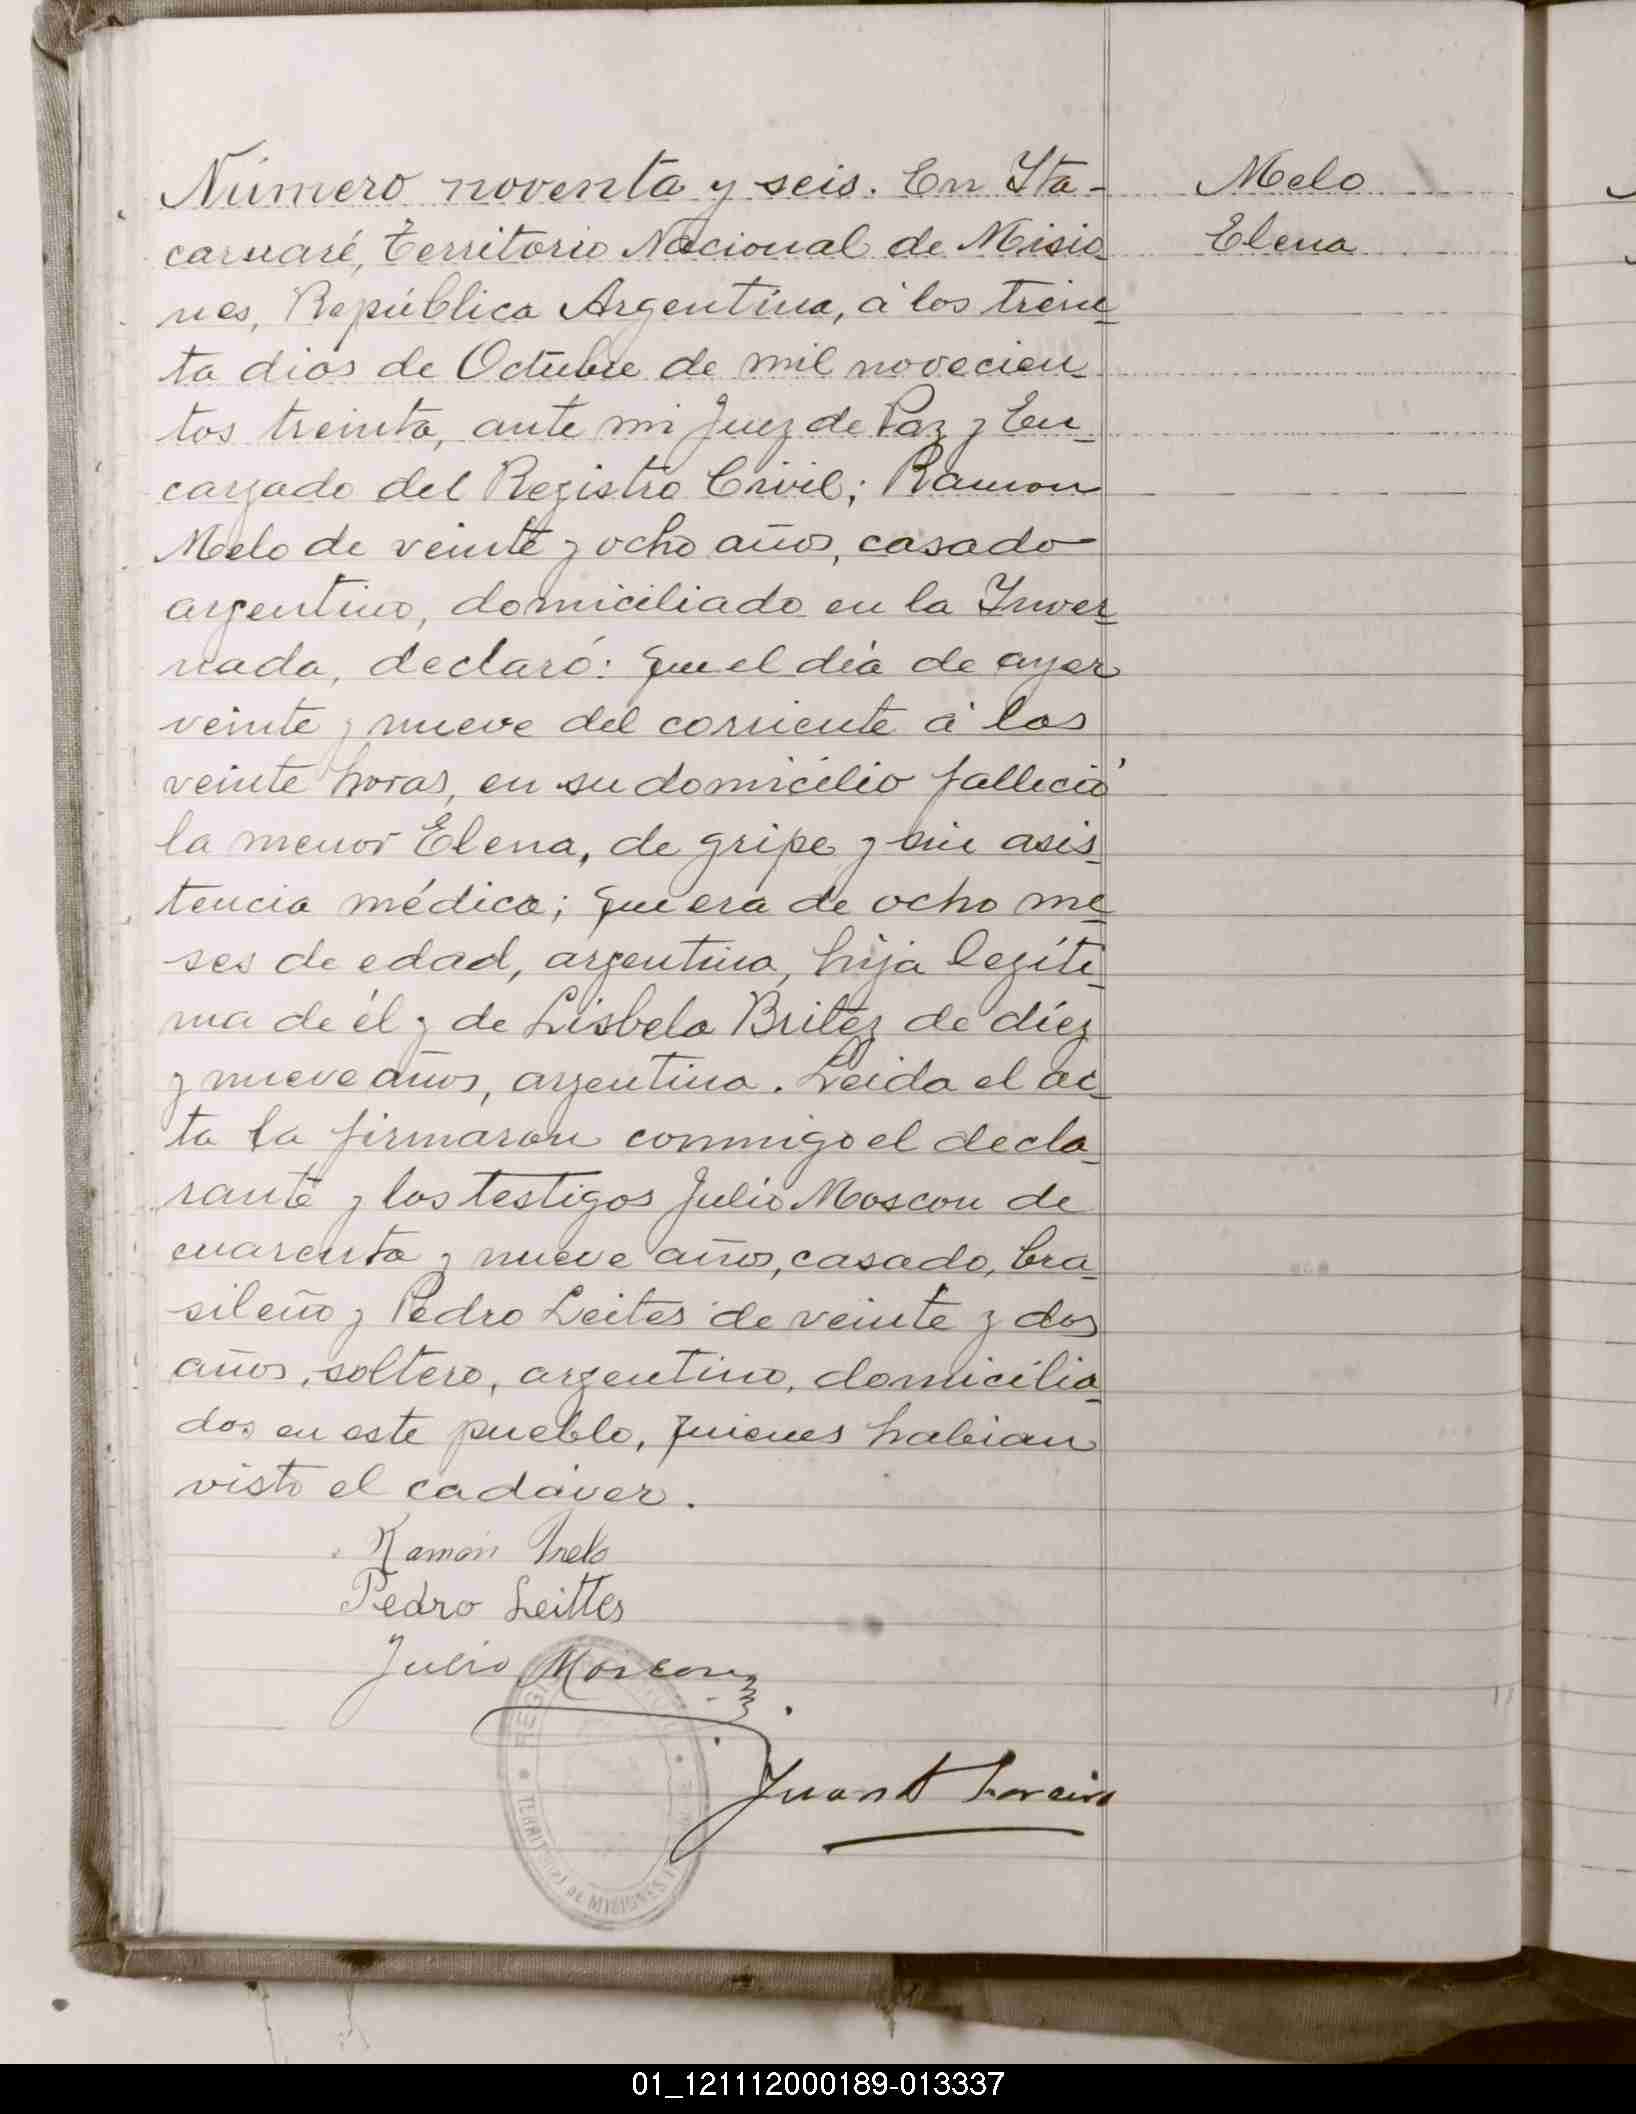 Número noventa y seis. En Ita-
Melo
caruaré, Territorio Nacional de Misio-
Elena
nes, República Argentina, á los trein-
ta dias de Octubre de mil novecien-
tos treinta, ante mi Juez de Paz y En-
cargado del Registro Civil; Ramon
Melo de veinte y ocho años, casado
argentino, domiciliado en la Inver-
nada, declaró: Que el día de ayer
veinte y nueve del corriente á las
veinte horas, en su domicilio falleció
la menor Elena, de gripe y sin asis-
tencia médica; que era de ocho me-
ses de edad, argentina, hija legíti-
ma de él y de Lisbela Britez de diez
y nueve años, argentina. Leida el ac-
ta la firmaron conmigo el decla-
rante y los testigos Julio Moscon de
cuarenta y nueve años, casado, bra-
sileño y Pedro Leites de veinte y dos
años, soltero, argentino, domicilia-
dos en este pueblo, quienes habian
visto el cadáver.
Ramón Melo
Pedro Leittes
Julio Moscon
Juan A
TERRITORIO DE MISIONES
01_121112000189-013337